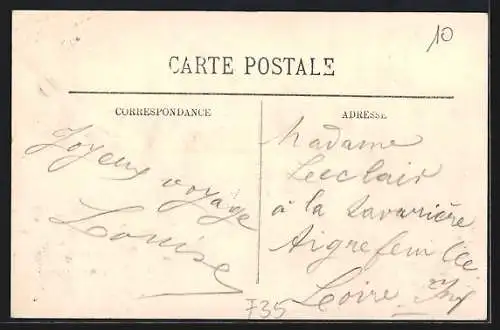 10
CARTE POSTALE
CORRESPONDANCE
Joyeux voyage
Louise
ADRESSE
Madame
Leclair
à la Savarière
Aigrefeuille
Loire Inf
735